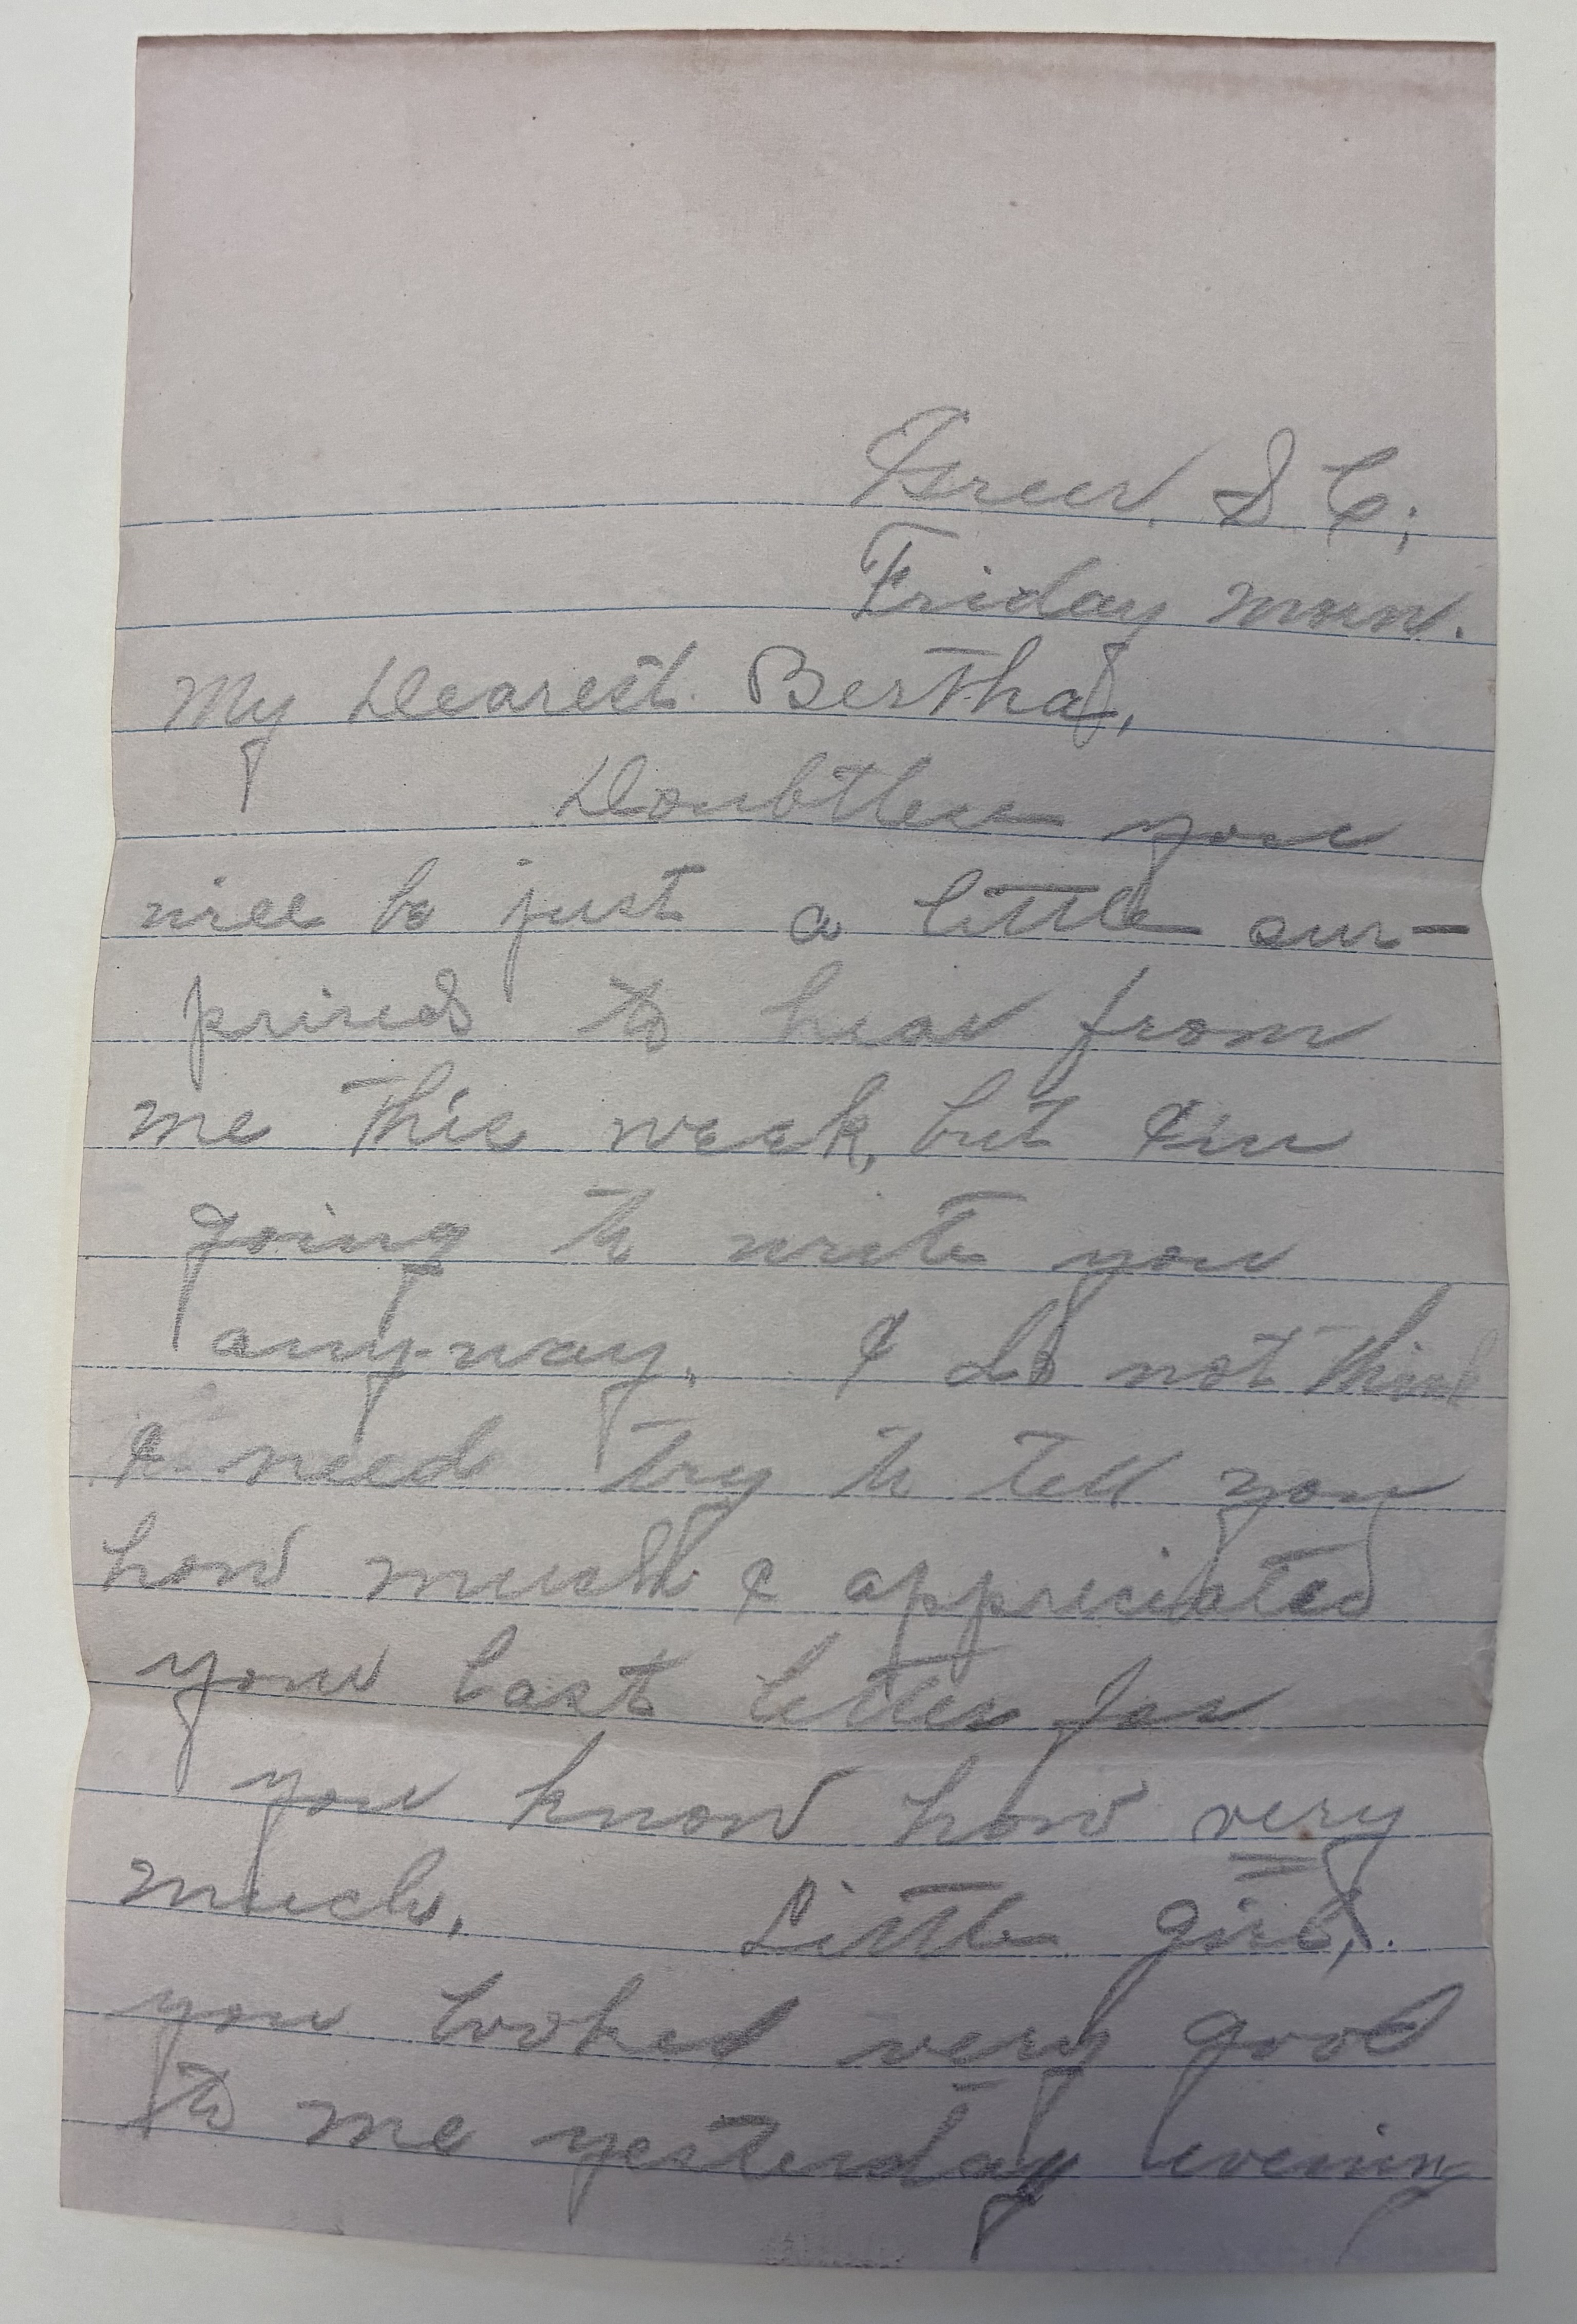 Greer, S. C;
Friday morn.
My Dearest Bertha,
Doubtless you
will be just a little sur-
prised to hear from
me this week, but I'm
going to write you
any-way. I do not think
I need try to tell you
how much I appreciated
your last letter for
you know how very
much. Little girl,
you looked very good
to me yesterday evening